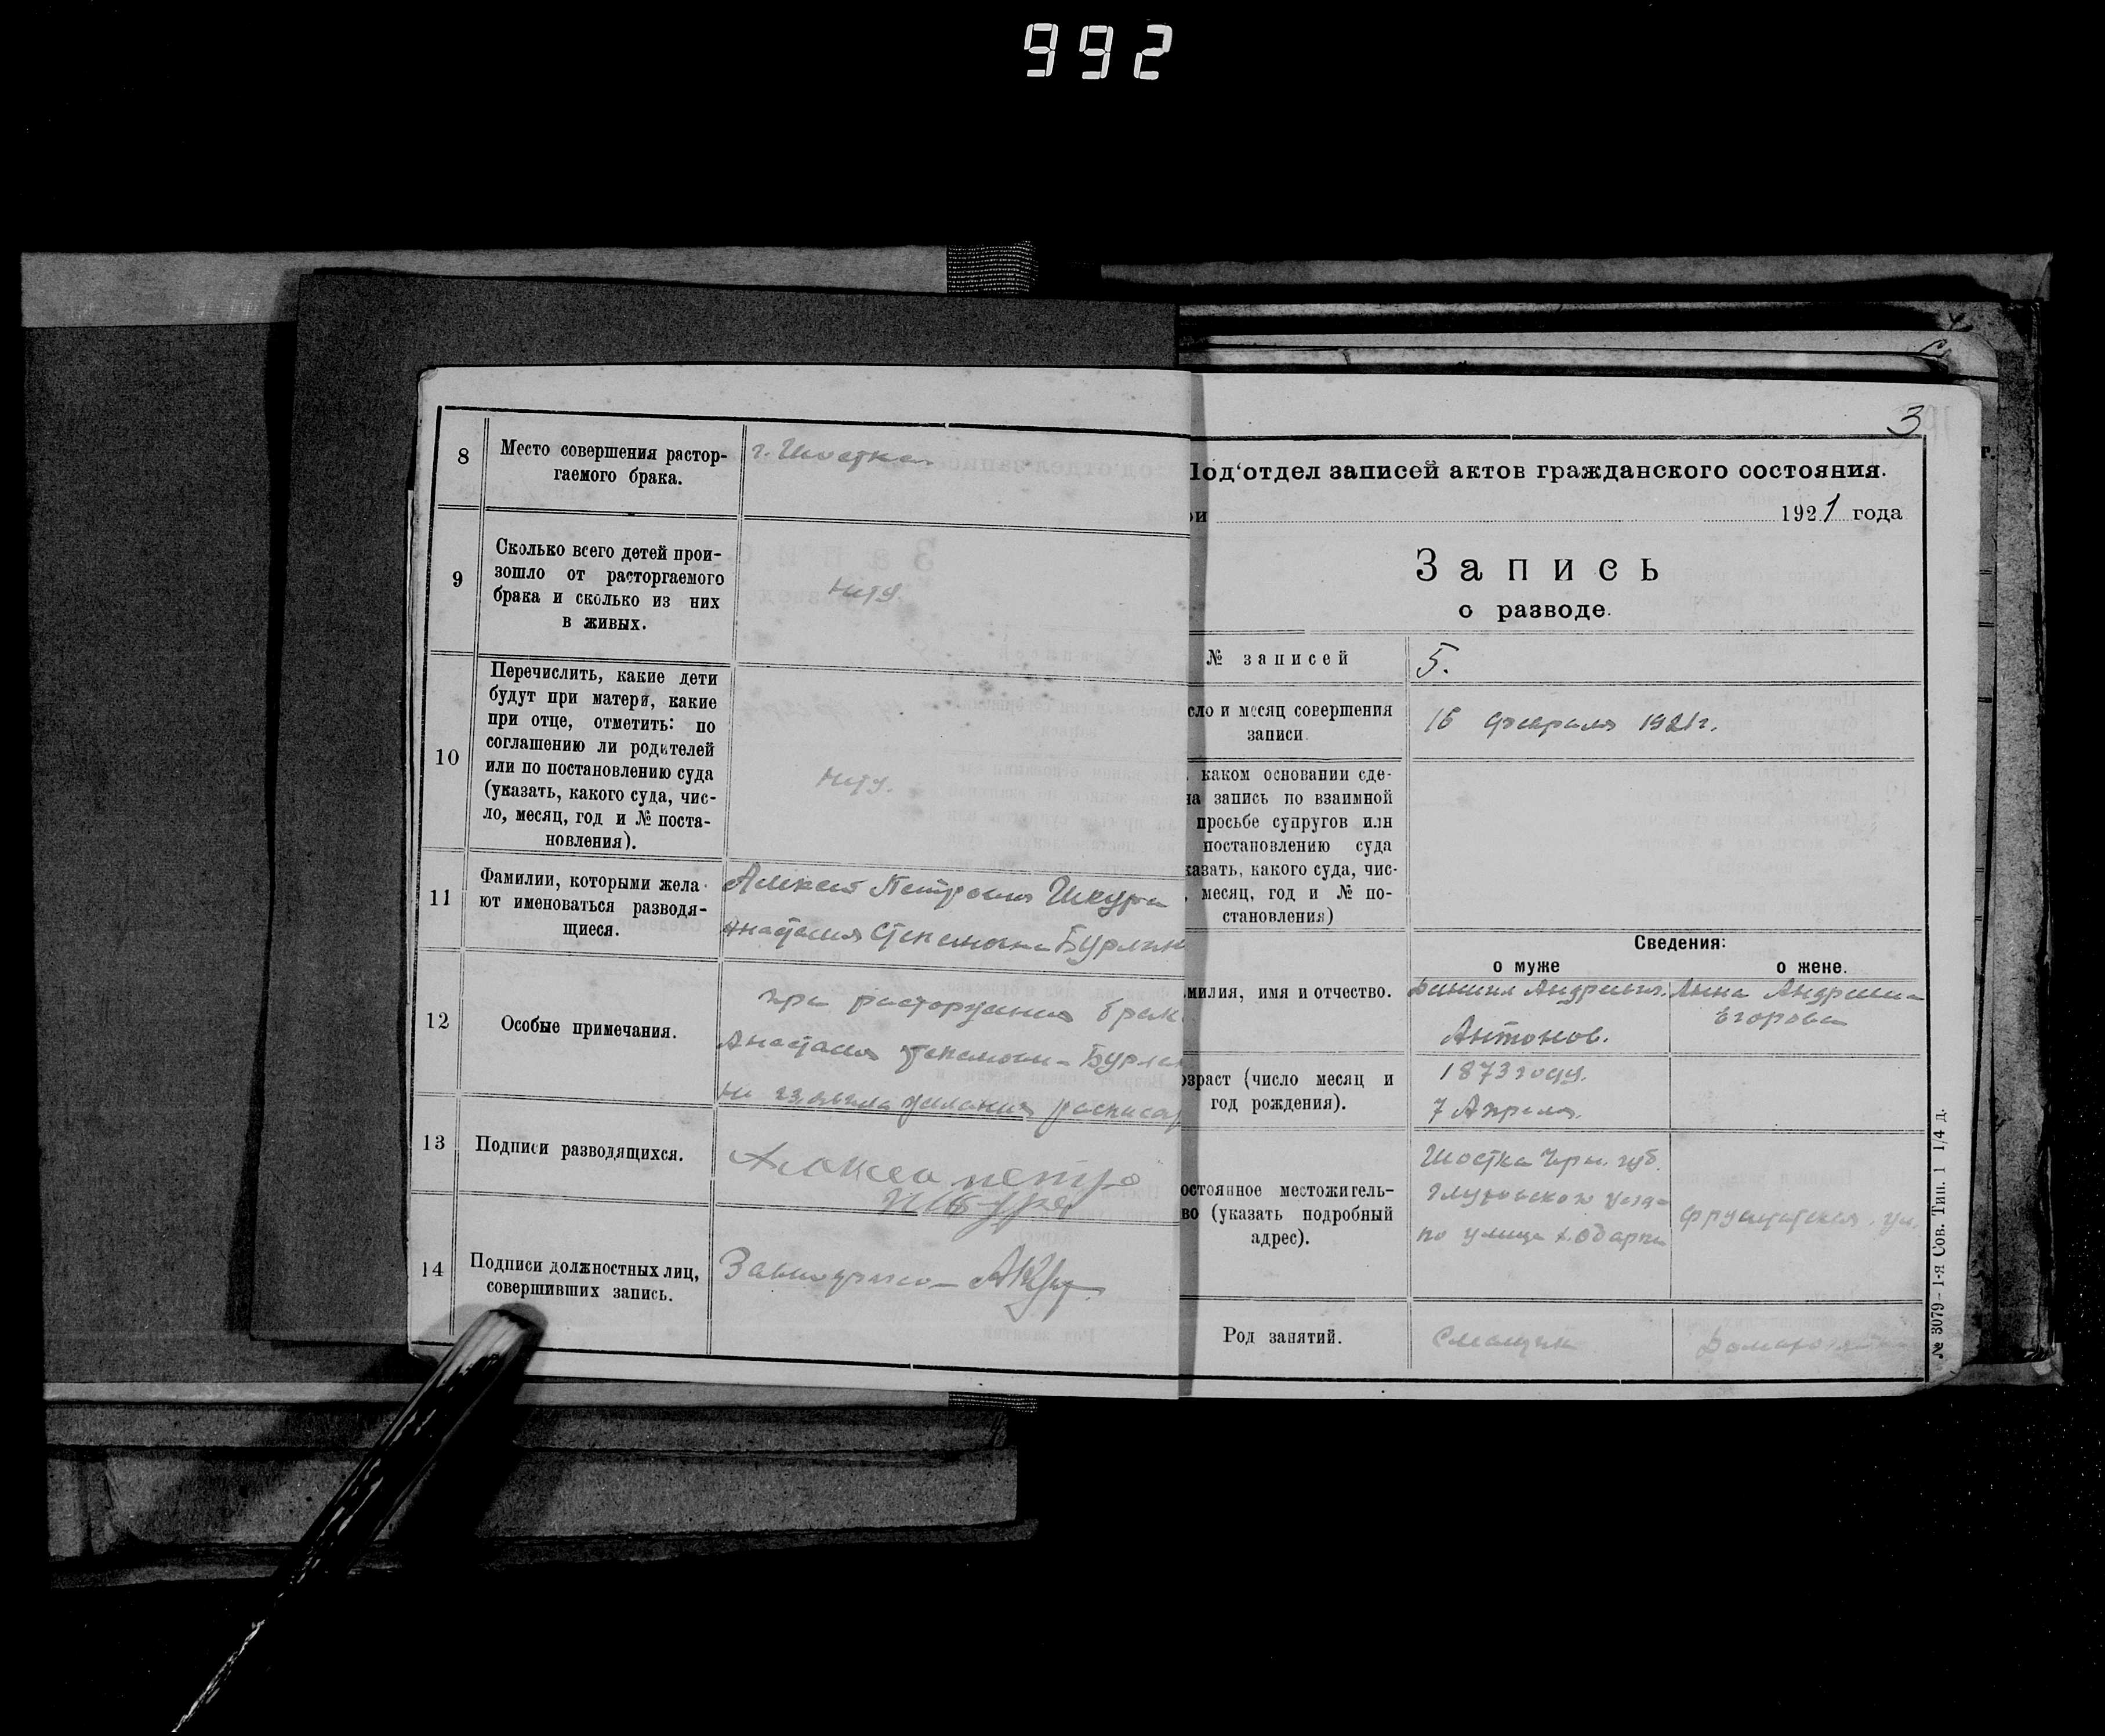 992
8
Место совершения растор-
гаемого брака.
г. Шостка
9
Сколько всего детей прои-
зошло от расторгаемого
брака и сколько из них
в живых.
нету.
10
Перечислить, какие дети
будут при матери, какие
при отце, отметить: по
соглашению ли родителей
или по постановлению суда
(указать, какого суда, чис-
ло, месяц, год и № поста-
новления).
нету.
11
Фамилии, которыми жела-
ют именоваться разводя-
щиеся.
Алексей Петрович Шкура
Анастасия Степановна Бурлин
12
Особые примечания.
при расторжении брак
Анастасия Бурли
не желания расписат
13
Подписи разводящихся.
14
Подписи должностных лиц,
совершивших запись.
3
Под'отдел записей актов гражданского состояния.
ри 1921 года
Запись
о разводе.
№ записей
5.
сло и месяц совершения
записи.
16 февраля 1921 г.
каком основании сде-
на запись по взаимной
просьбе супругов или
постановлению суда
казать, какого суда, чис-
месяц, год и № по-
становления)
Сведения:
о муже
о жене.
милия, имя и отчество.
Даниил Андреевич
Антонов.
Анна Андреевна
Егорова
озраст (число месяц и
год рождения).
1873 году.
7 Апреля.
остоянное местожитель-
во (указать подробный
адрес).
Шостка Чрн. губ.
Глуховского уезда
по улице
ул.
Род занятий.
Смащик
№ 3079 – 1-я Сов. Тип. 1 1/4 д.